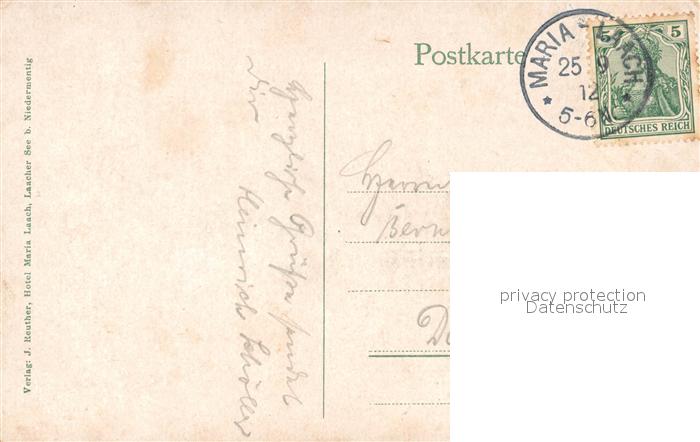 Postkarte
MARIA-LAACH
25 9
12
5-6N
5 5
DEUTSCHES REICH
Herrn
Bern
D
Herzliche Grüße sendet
Dir
Heinrich Schöller
Verlag: J. Reuther, Hotel Maria Laach, Laacher See b. Niedermentig
privacy protection
Datenschutz